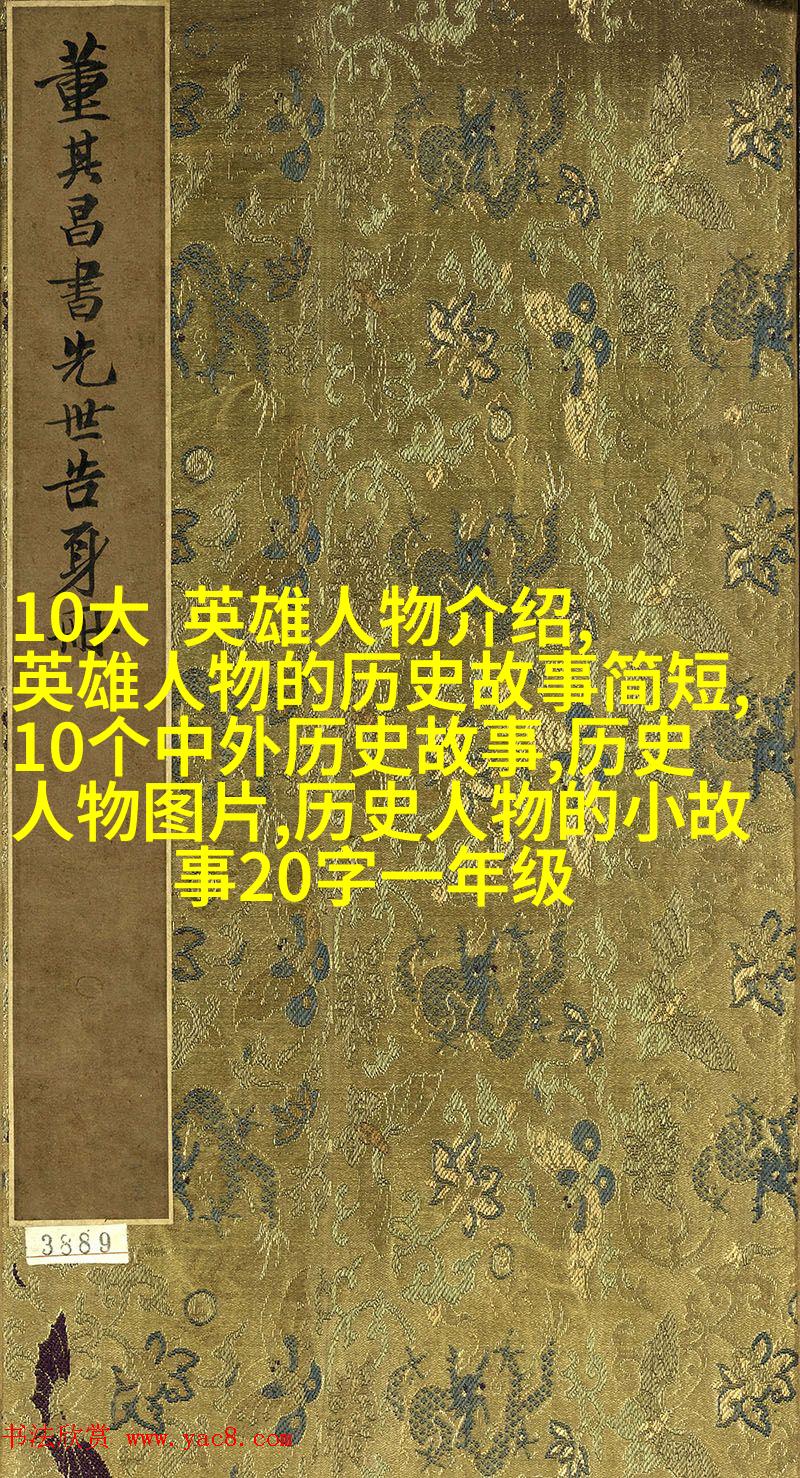 董其昌書先世告身冊
10大 英雄人物介绍,
英雄人物的历史故事简短,
10个中外历史故事,历史
人物图片,历史人物的小故
事20字一年级
3889
书法欣赏 www.yac8.com